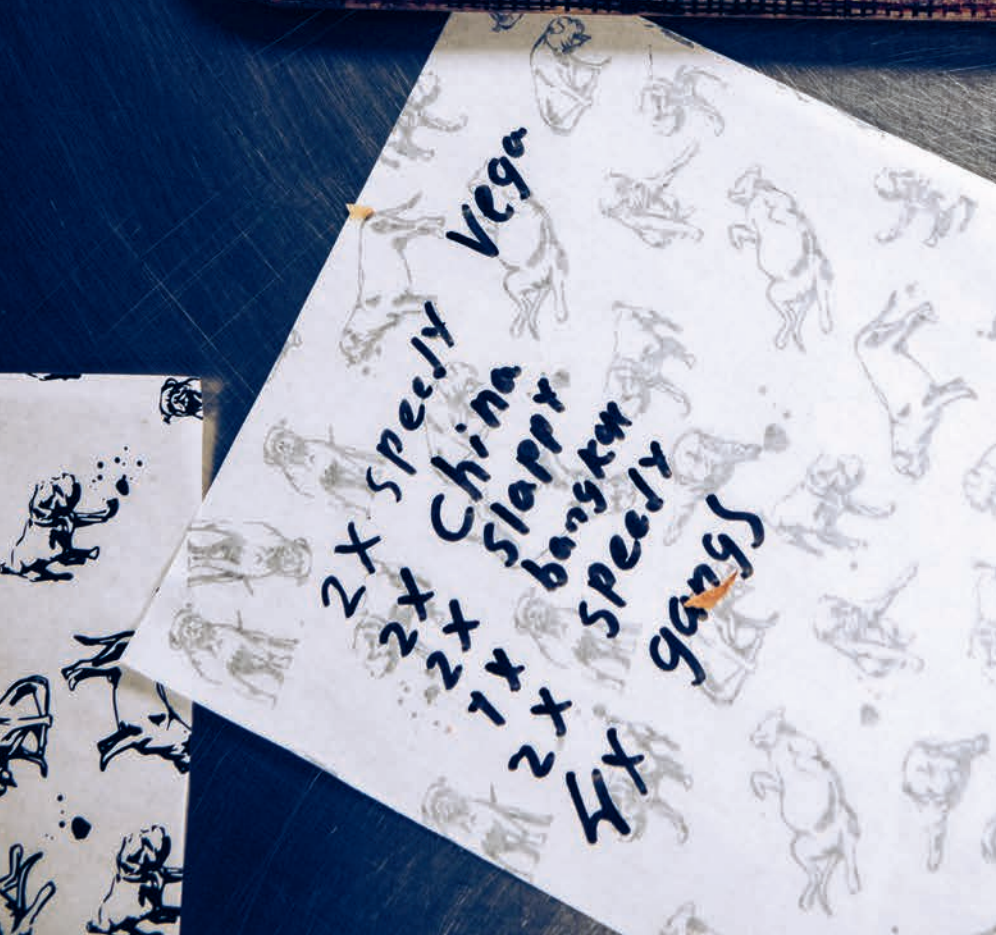 2x speedy vega
2x China
2x slappy
1x bangkok
2x speedy
4x gangs